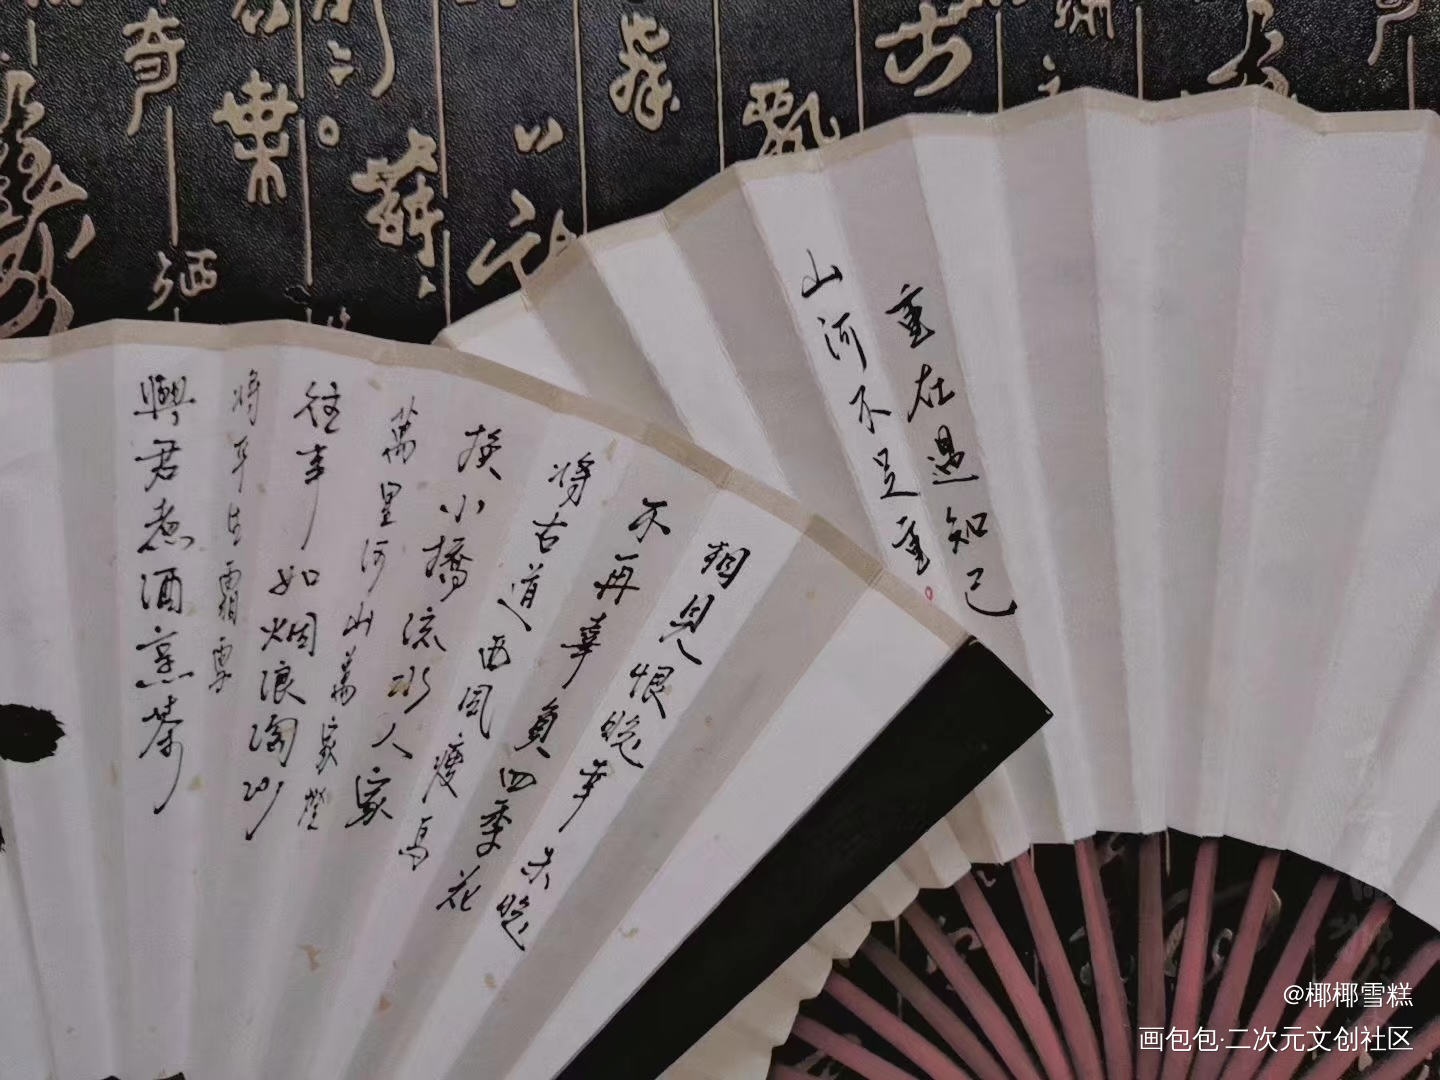 重在遇知己
山河不足重
相見恨晚幸未晚
不再辜負四季花
将古道西風瘦馬
换小橋流水人家
萬里河山萬家燈
往事如烟浪淘沙
将平生霜雪
與君煮酒烹茶
奇
葉
飄
以
@椰椰雪糕
画包包·二次元文创社区